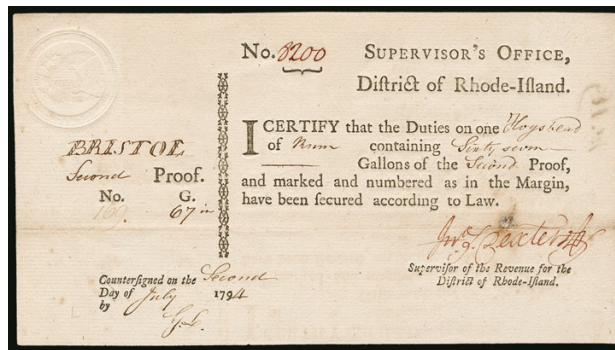 No. 8200
SUPERVISOR'S OFFICE,
Diſtrict of Rhode-Iſland.
I CERTIFY that the Duties on one Hogshead
of Rum containing Sixty seven
Gallons of the Second Proof,
and marked and numbered as in the Margin,
have been ſecured according to Law.
Jno. S. Dexter
Superviſor of the Revenue for the
Diſtrict of Rhode-Iſland.
BRISTOL
Second Proof.
No. G.
169. 67
Counterſigned on the Second
Day of July 1794
by